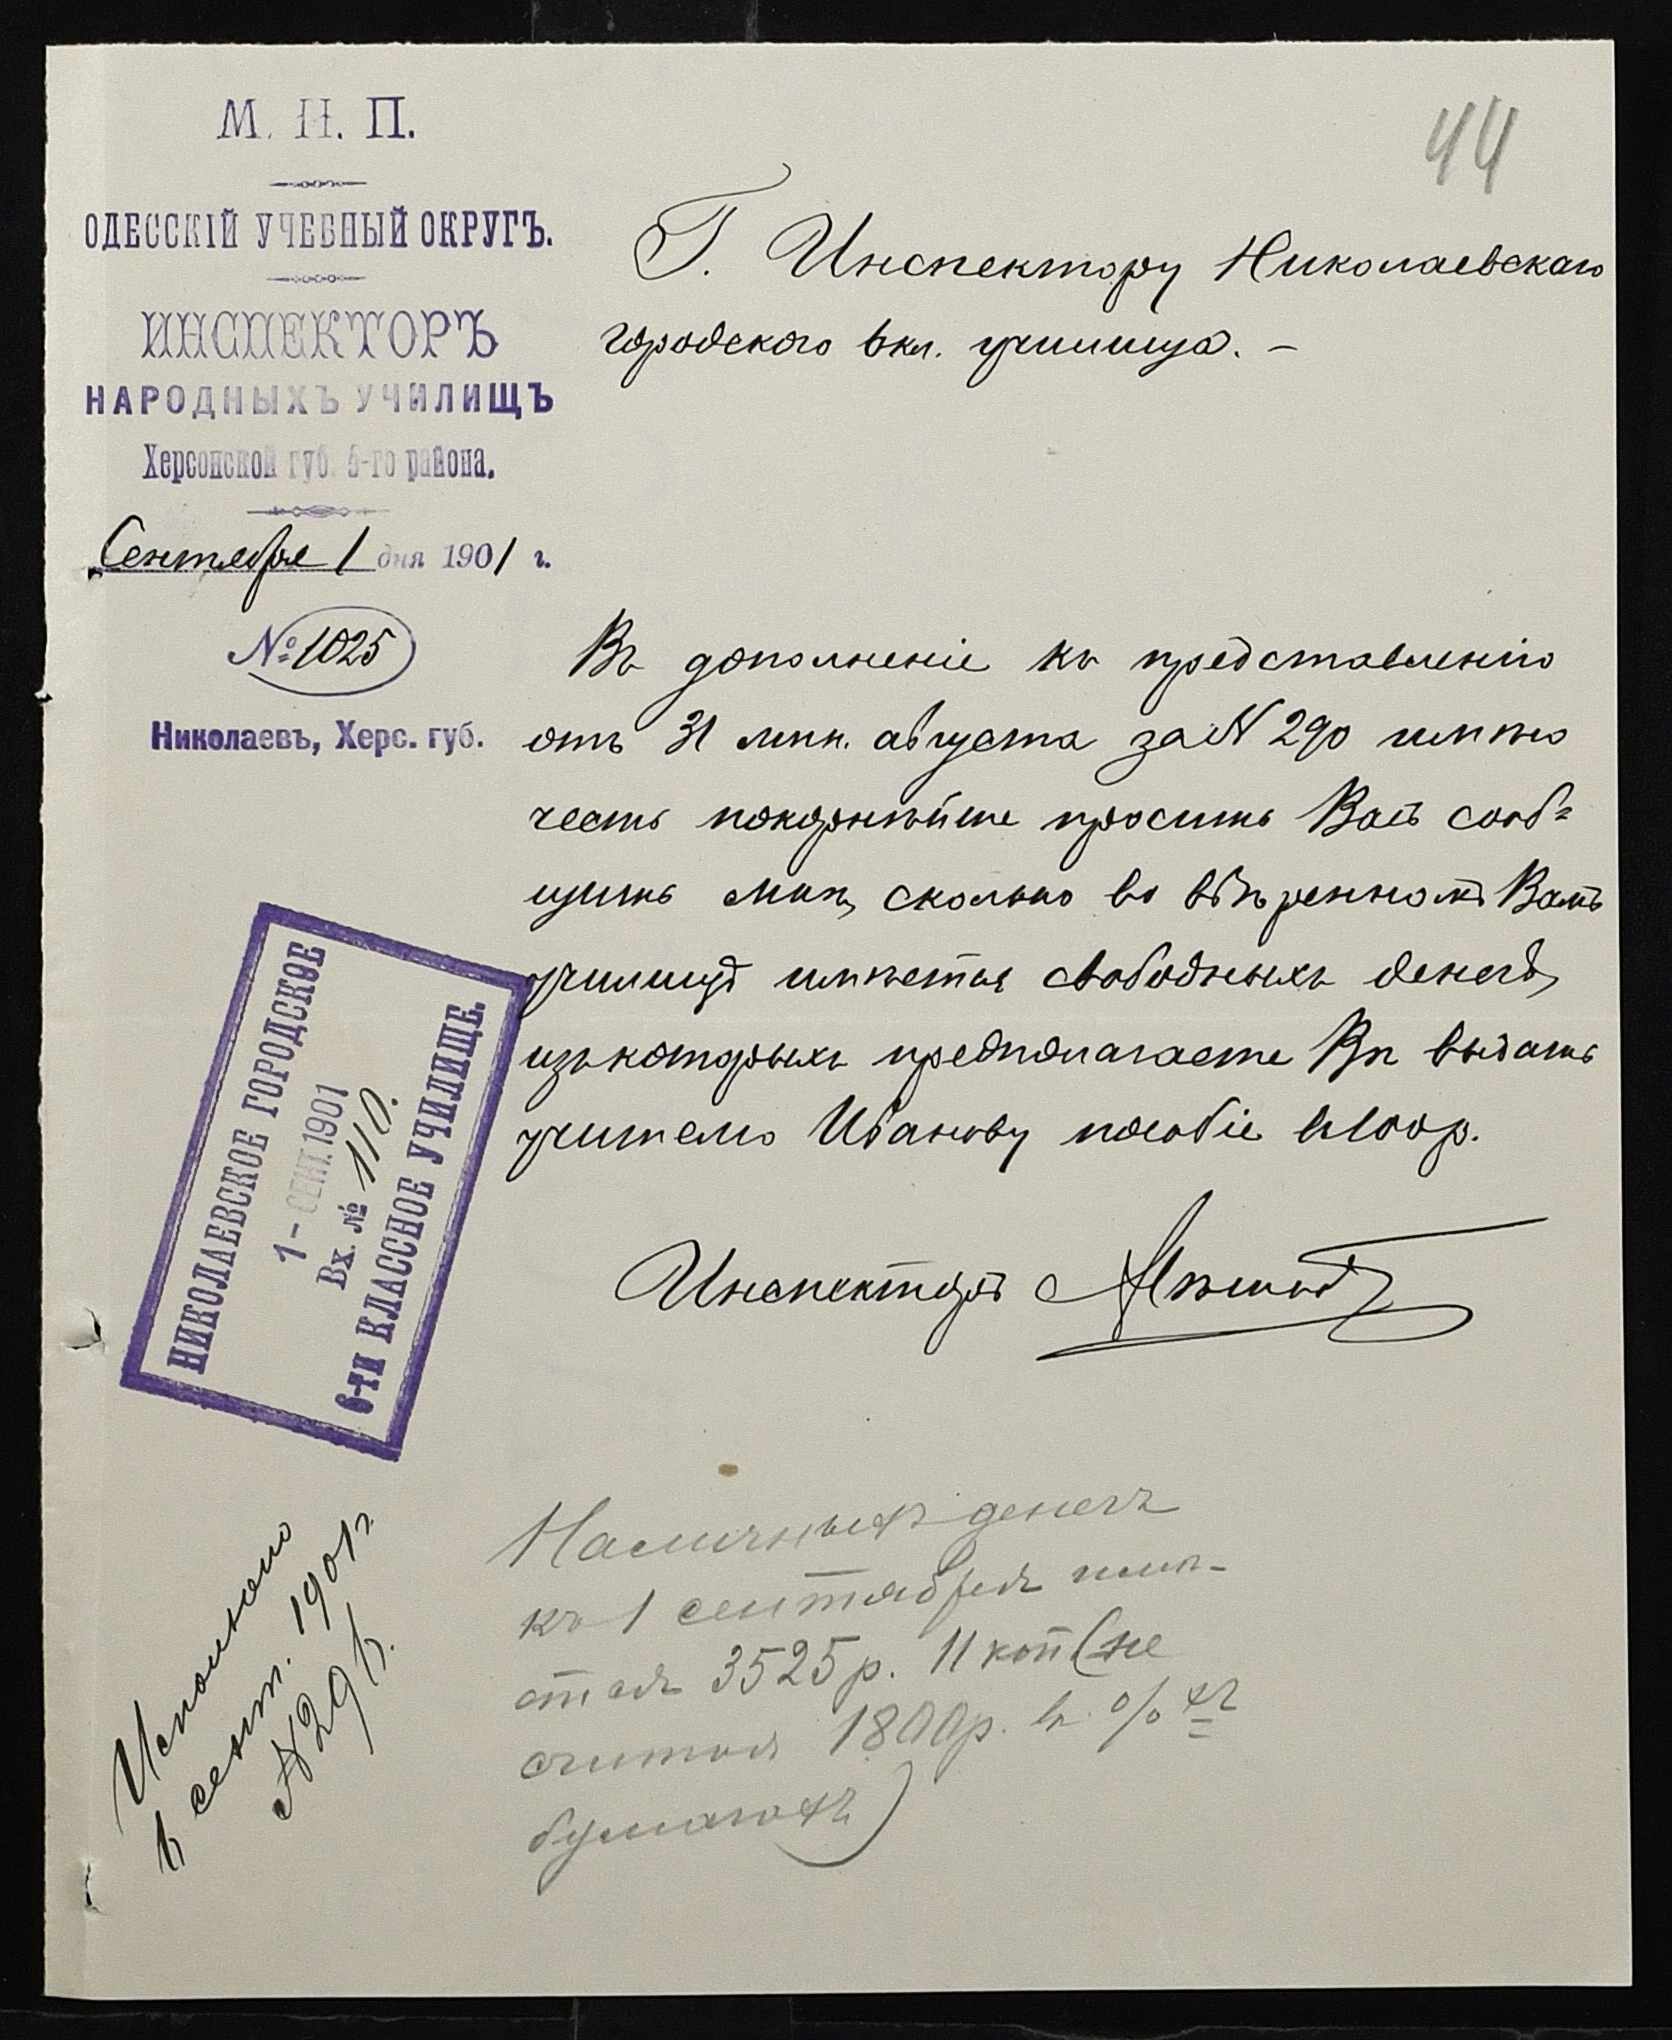 М. Н. П.
ОДЕССКІЙ УЧЕБНЫЙ ОКРУГЪ.
ИНСПЕКТОРЪ
НАРОДНЫХЪ УЧИЛИЩЪ
Херсонской губ. 5-го района.
Сентября 1 дня 1901 г.
№ 1025
Николаевъ, Херс. губ.
44
Г. Инспектору Николаевскаго
городского 6 кл. училища. –
Въ дополненіе къ представленію
отъ 31 мин. августа за № 290 имѣю
честь покорнѣйше просить Васъ сооб-
щить мнѣ, сколько во ввѣренномъ Вамъ
училищѣ имѣется свободныхъ денегъ,
изъ которыхъ предполагаете Вы выдать
учителю Иванову пособіе въ 100 р.
Инспекторъ
НИКОЛАЕВСКОЕ ГОРОДСКОЕ
1 - СЕНТ. 1901
Вх. № 110.
6-ТИ КЛАССНОЕ УЧИЛИЩЕ.
Наличныхъ денегъ
къ 1 сентября имѣ-
ется 3525 р. 11 коп (не
считая 1800 р. въ %хъ
бумагахъ)
Исполнено
сент. 1901 г.